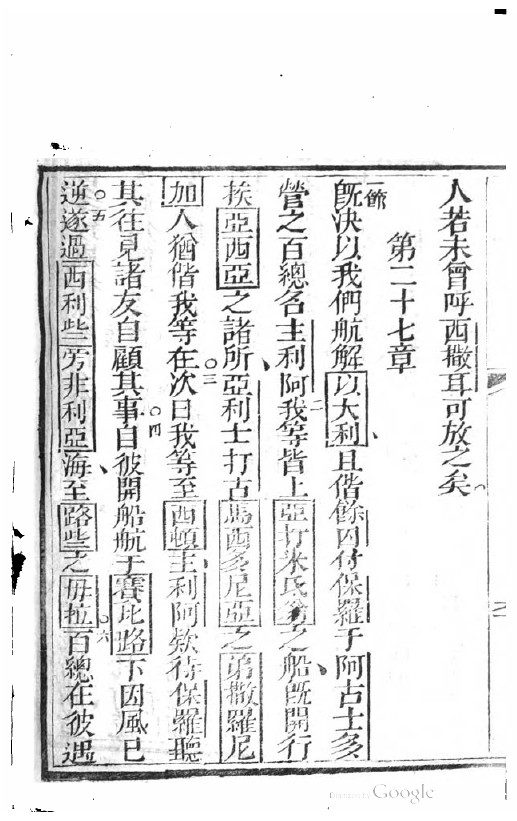 人若未曾呼西撒耳可放之矣。
第二十七章
一節既決以我們航解以大利、且偕餘囚付保羅于阿古士多
營之百總名主利阿二我等皆上亞打米氏翁之船、既開行
挨亞西亞之諸所、亞利士打古馬西多尼亞之弟撒羅尼
加人猶偕我等在。三次日我等至西頓、主利阿欸待保羅聽
其往見諸友自顧其事。四自彼開船航于賽比路下因風已
逆。五遂過西利些旁非利亞海、至路些之毋拉。六百總在彼遇
Digitized by Google